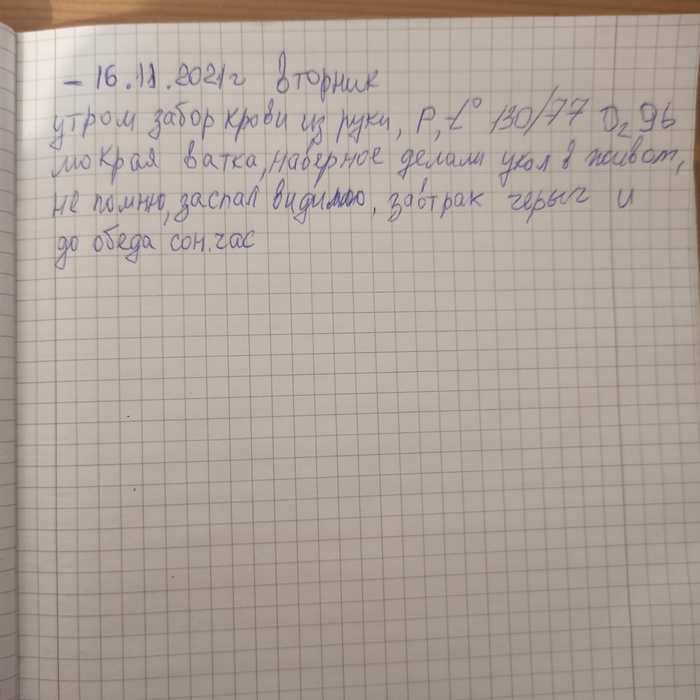 - 16.11.2021г вторник
утром забор крови из руки, P, t° 130/77 O₂ 96
мокрая ватка, наверное делали укол в живот,
не помню, заспал видимо, завтрак герыч и
до обеда сон.час